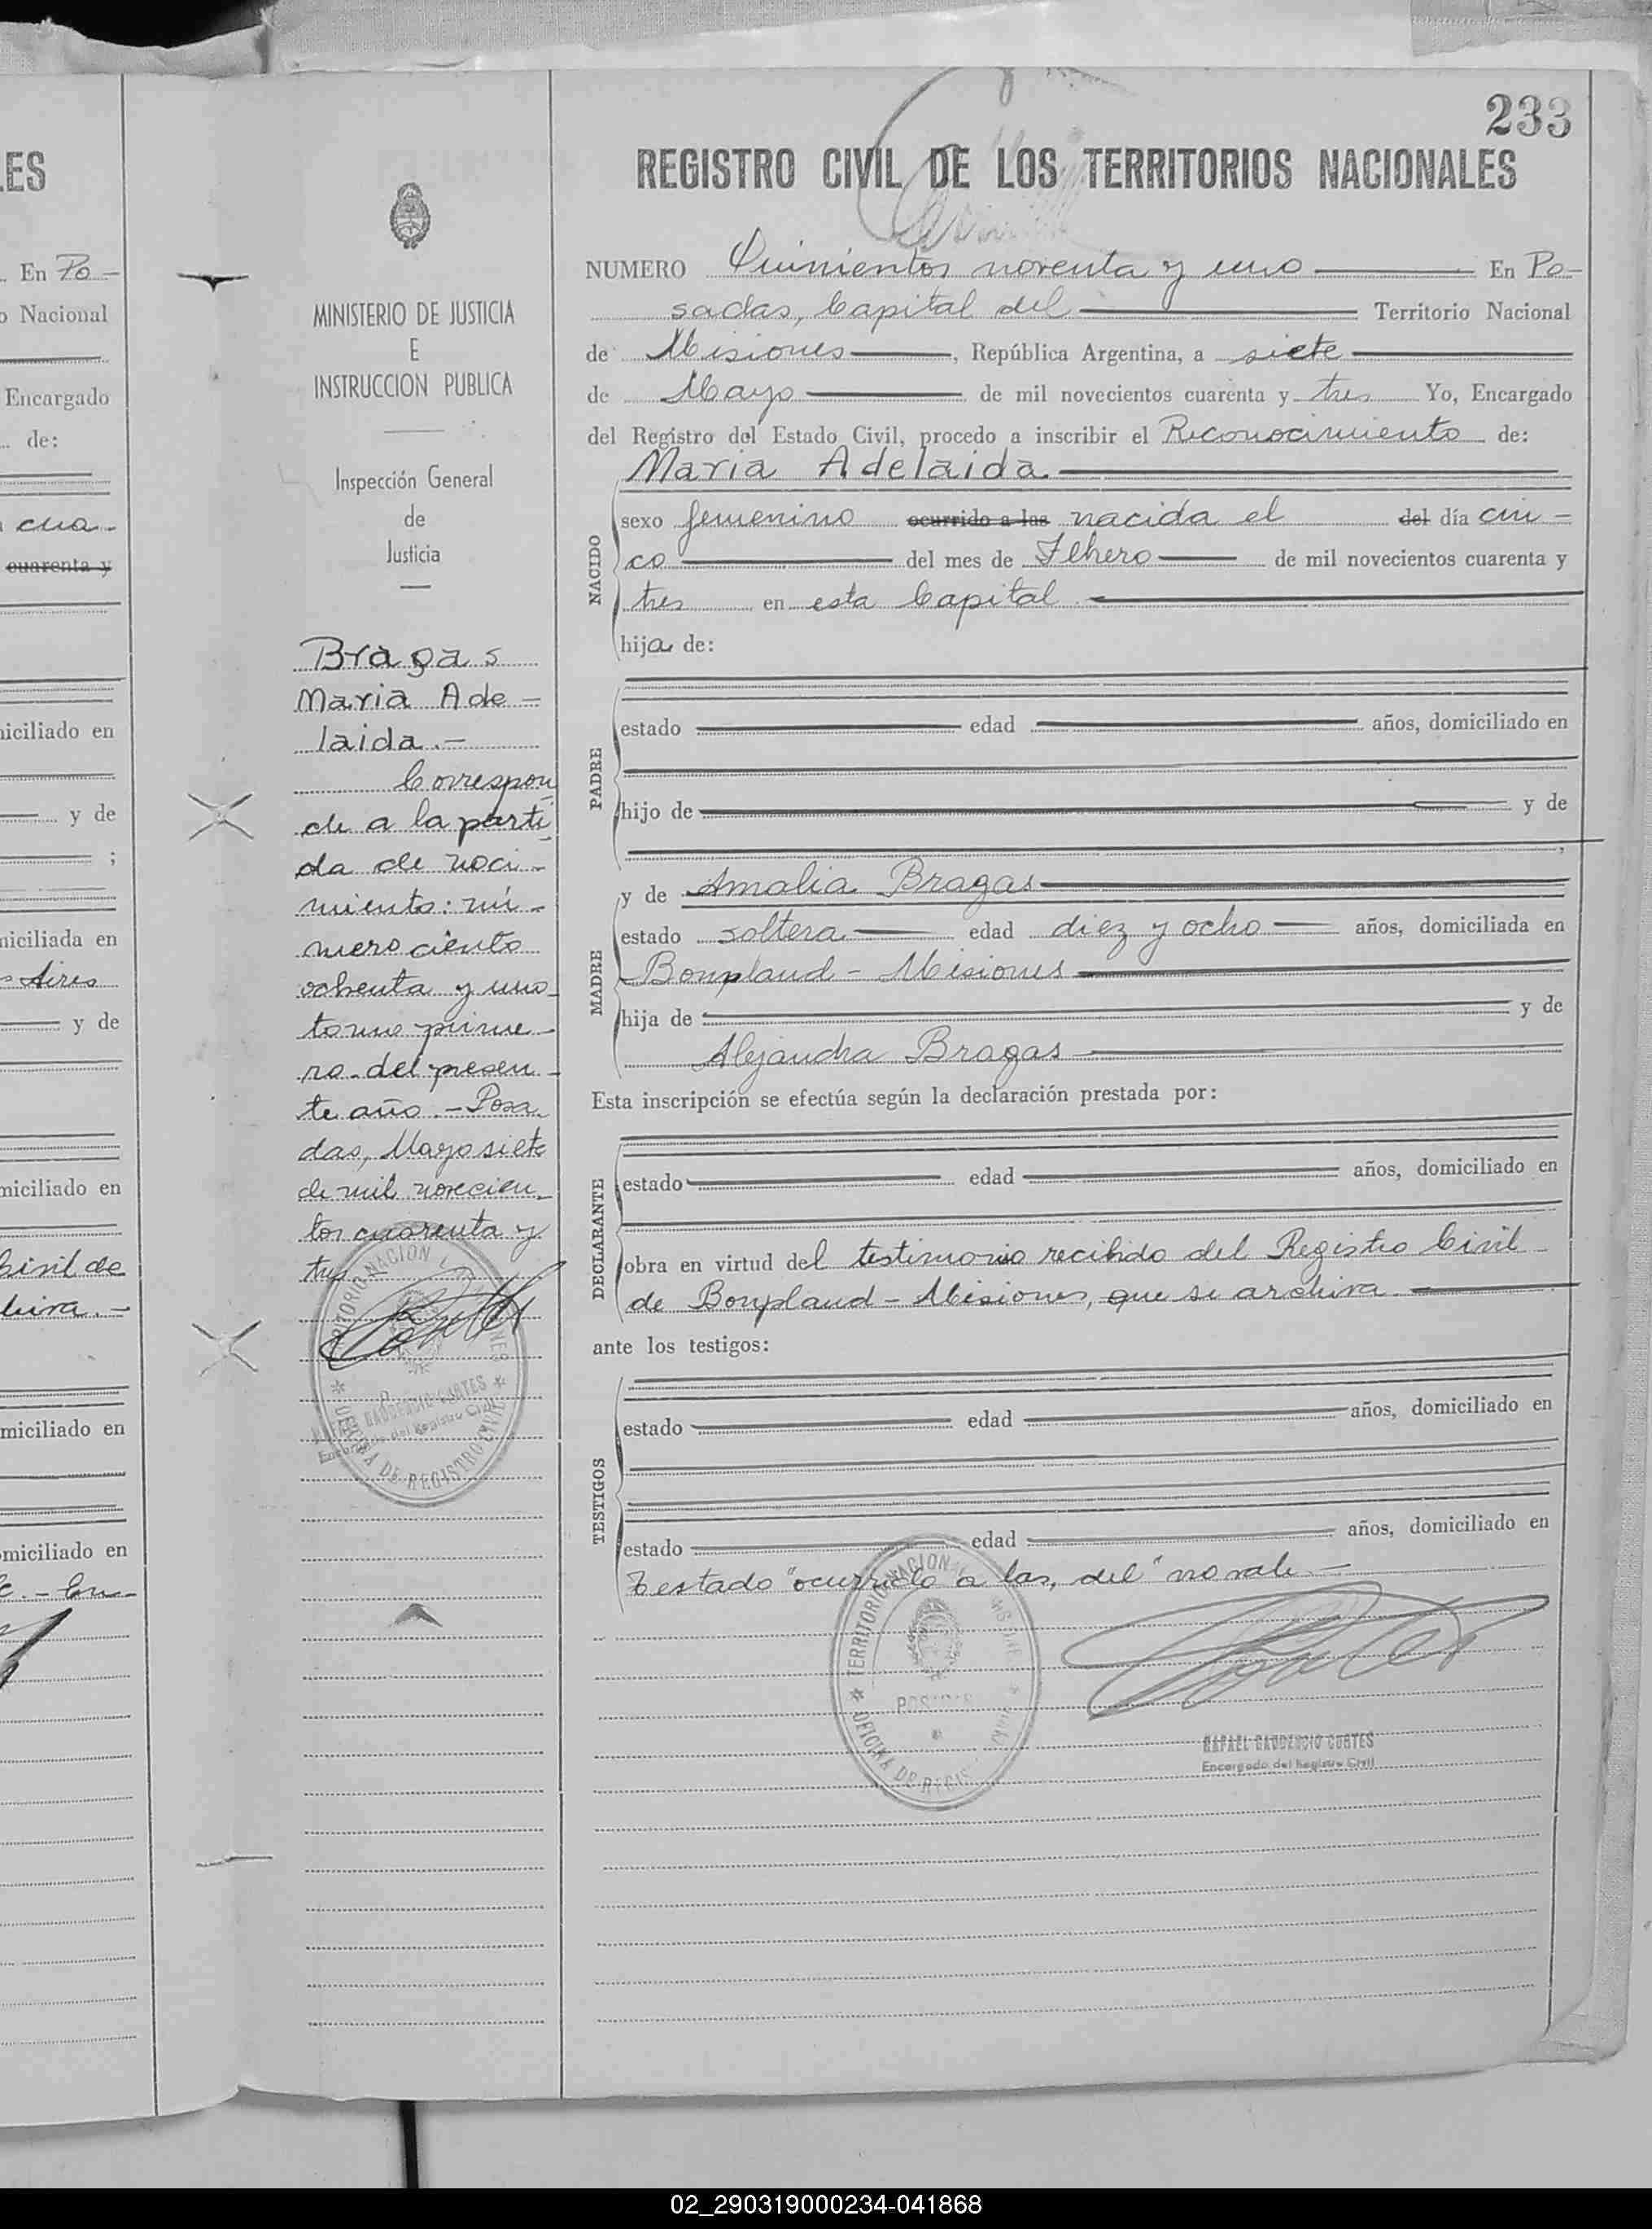 LES
En Po-
o Nacional
Encargado
de:
cua-
cuarenta y
niciliado en
y de
;
niciliada en
s Aires
y de
miciliado en
Civil de
chiva.-
miciliado en
omiciliado en
MINISTERIO DE JUSTICIA
E
INSTRUCCION PUBLICA
Inspección General
de
Justicia
Bragas
Maria Ade-
laida.-
Correspon
de a la parti
da de naci-
miento: nú-
mero ciento
ochenta y uno
tomo prime-
ro del presen-
te año.- Posa
das, Mayo siete
de mil novecien-
tos cuarenta y
tres
233
REGISTRO CIVIL DE LOS TERRITORIOS NACIONALES
NUMERO Quinientos noventa y uno En Po-
sadas, Capital del Territorio Nacional
de Misiones, República Argentina, a siete
de Mayo de mil novecientos cuarenta y tres Yo, Encargado
del Registro del Estado Civil, procedo a inscribir el Reconocimiento de:
Maria Adelaida
NACIDO
sexo femenino ocurrido a las nacida el del día cin-
co del mes de Febrero de mil novecientos cuarenta y
tres en esta Capital
hija de:
PADRE
estado edad años, domiciliado en
hijo de y de
,
MADRE
y de Amalia Bragas
estado soltera edad diez y ocho años, domiciliada en
Bonpland - Misiones
hija de y de
Alejandra Bragas
Esta inscripción se efectúa según la declaración prestada por:
DECLARANTE
estado edad años, domiciliado en
obra en virtud del testimonio recibido del Registro Civil
de Bonpland - Misiones, que se archiva.
ante los testigos:
TESTIGOS
estado edad años, domiciliado en
estado edad años, domiciliado en
Testado "ocurrido a las, del" no vale.-
RAFAEL GAUDENCIO CORTES
Encargado del Registro Civil
02_290319000234-041868